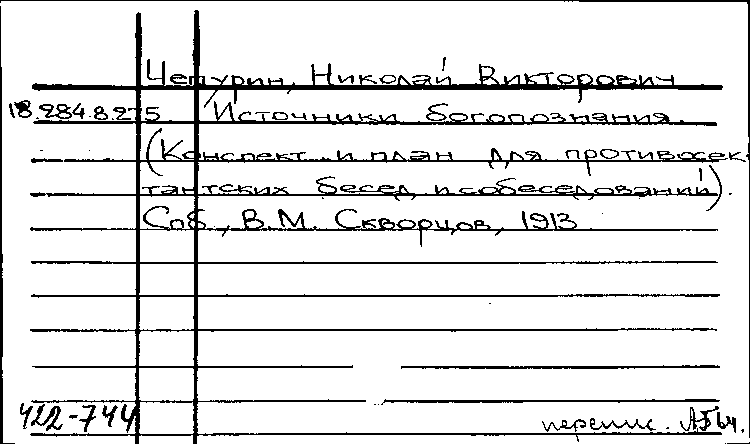 Чепурин, Николай Викторович
18.284.8.275. Источники богопознания.
(Конспект и план для противосек
тантских бесед и собеседований).
Спб, В.М. Скворцов, 1913
422-744
перепис.